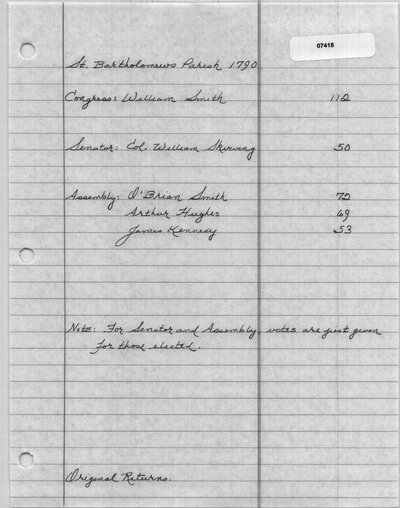 07418
St. Bartholomews Parish 1790
Congress: William Smith 112
Senator: Col. William Skirving 50
Assembly: O'Brian Smith 72
Arthur Hughes 69
James Kennedy 53
Note: For Senator and Assembly, votes are just given
for those elected.
Original Returns.